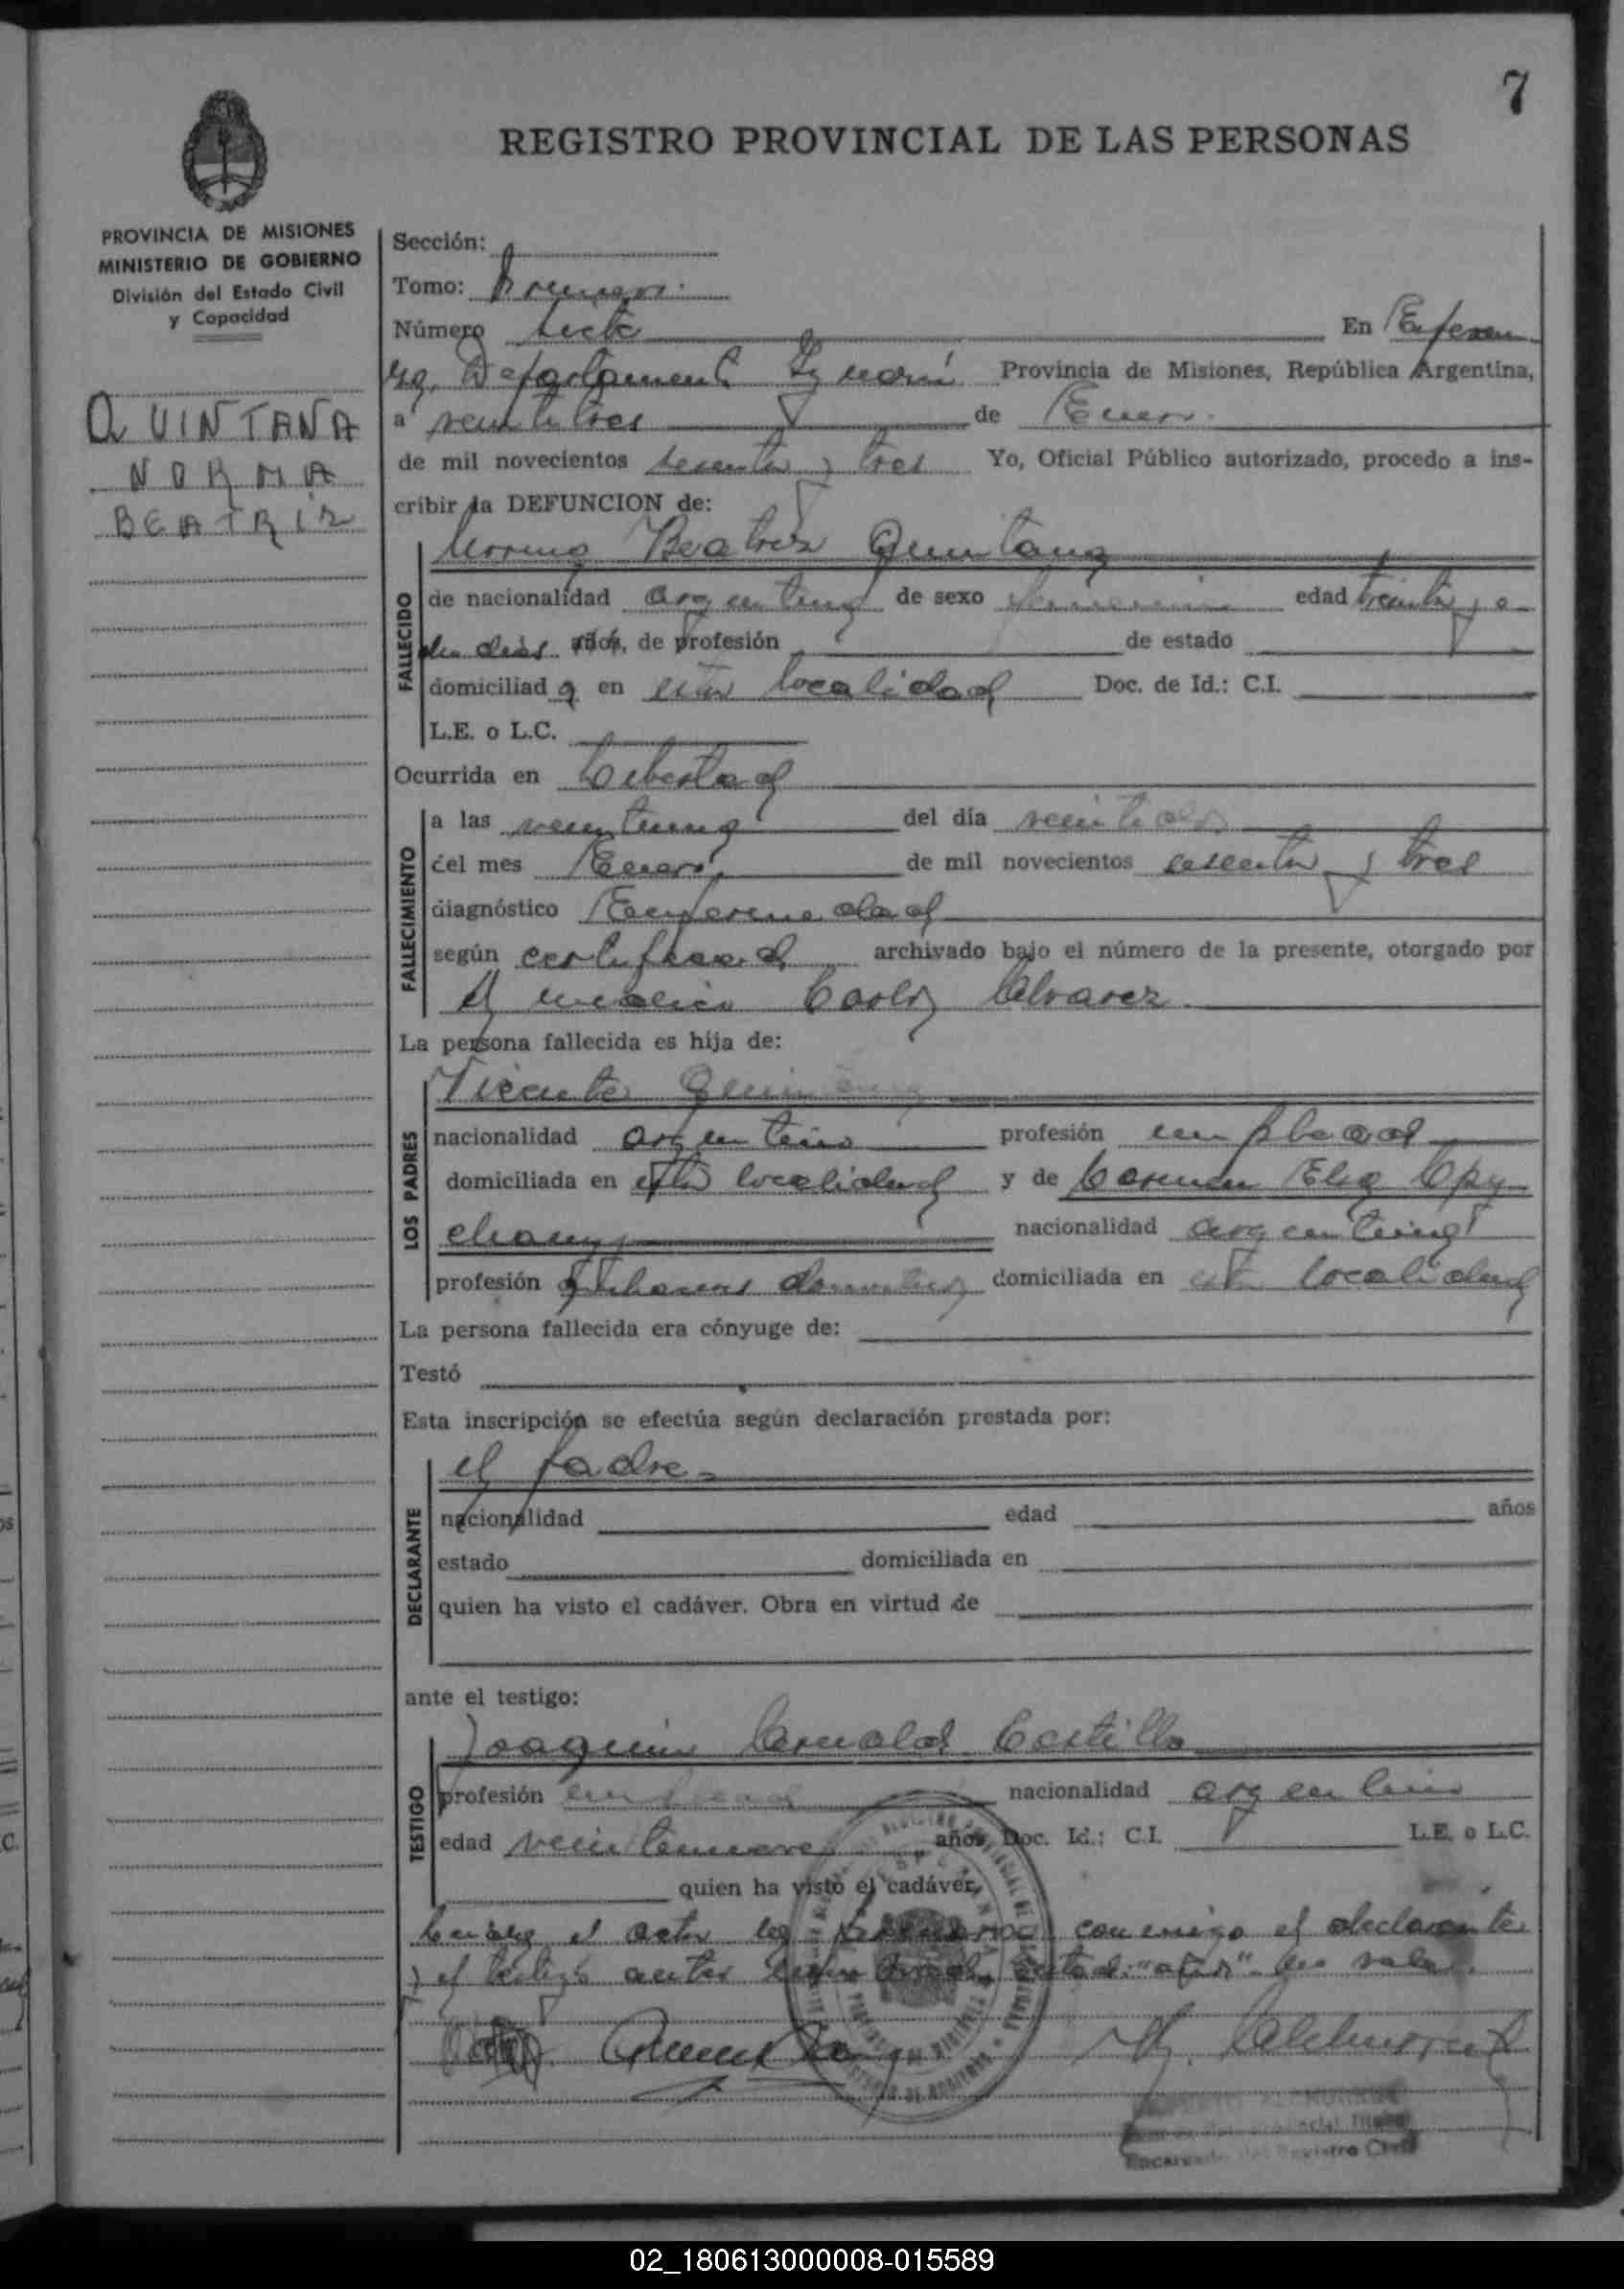 7
REGISTRO PROVINCIAL DE LAS PERSONAS
PROVINCIA DE MISIONES
MINISTERIO DE GOBIERNO
División del Estado Civil
y Capacidad
QUINTANA
NORMA
BEATRIZ
Sección:
Tomo: Primero.
Número siete En Esperan
za, Departamento Iguazú Provincia de Misiones, República Argentina,
a veintitres de Enero.
de mil novecientos sesenta y tres Yo, Oficial Público autorizado, procedo a ins-
cribir la DEFUNCION de:
Norma Beatriz Quintana
FALLECIDO
de nacionalidad argentina de sexo femenino edad treinta y o
cho dias años, de profesión de estado
domiciliad a en esta localidad Doc. de Id.: C.I.
L.E. o L.C.
Ocurrida en Libertad
FALLECIMIENTO
a las veintiuna del día veintidos
del mes Enero, de mil novecientos sesenta y tres
diagnóstico Enfermedad
según certificado archivado bajo el número de la presente, otorgado por
el médico Carlos Alvarez.
La persona fallecida es hija de:
LOS PADRES
Vicente Quintana
nacionalidad argentino profesión empleado
domiciliada en esta localidad y de Carmen Elsa
nacionalidad argentina
profesión quehaceres domesticos domiciliada en esta localidad
La persona fallecida era cónyuge de:
Testó
Esta inscripción se efectúa según declaración prestada por:
DECLARANTE
el padre-
nacionalidad edad años
estado domiciliada en
quien ha visto el cadáver. Obra en virtud de
ante el testigo:
TESTIGO
Joaquin Castillo
profesión empleado nacionalidad argentino
edad veintinueve años, Doc. Id.: C.I. L.E. o L.C.
quien ha visto el cadáver,
el acta conmigo el declarante
y el testigo antes "años" no vale.
Quintana
Encargado del Registro Civil
02_180613000008-015589